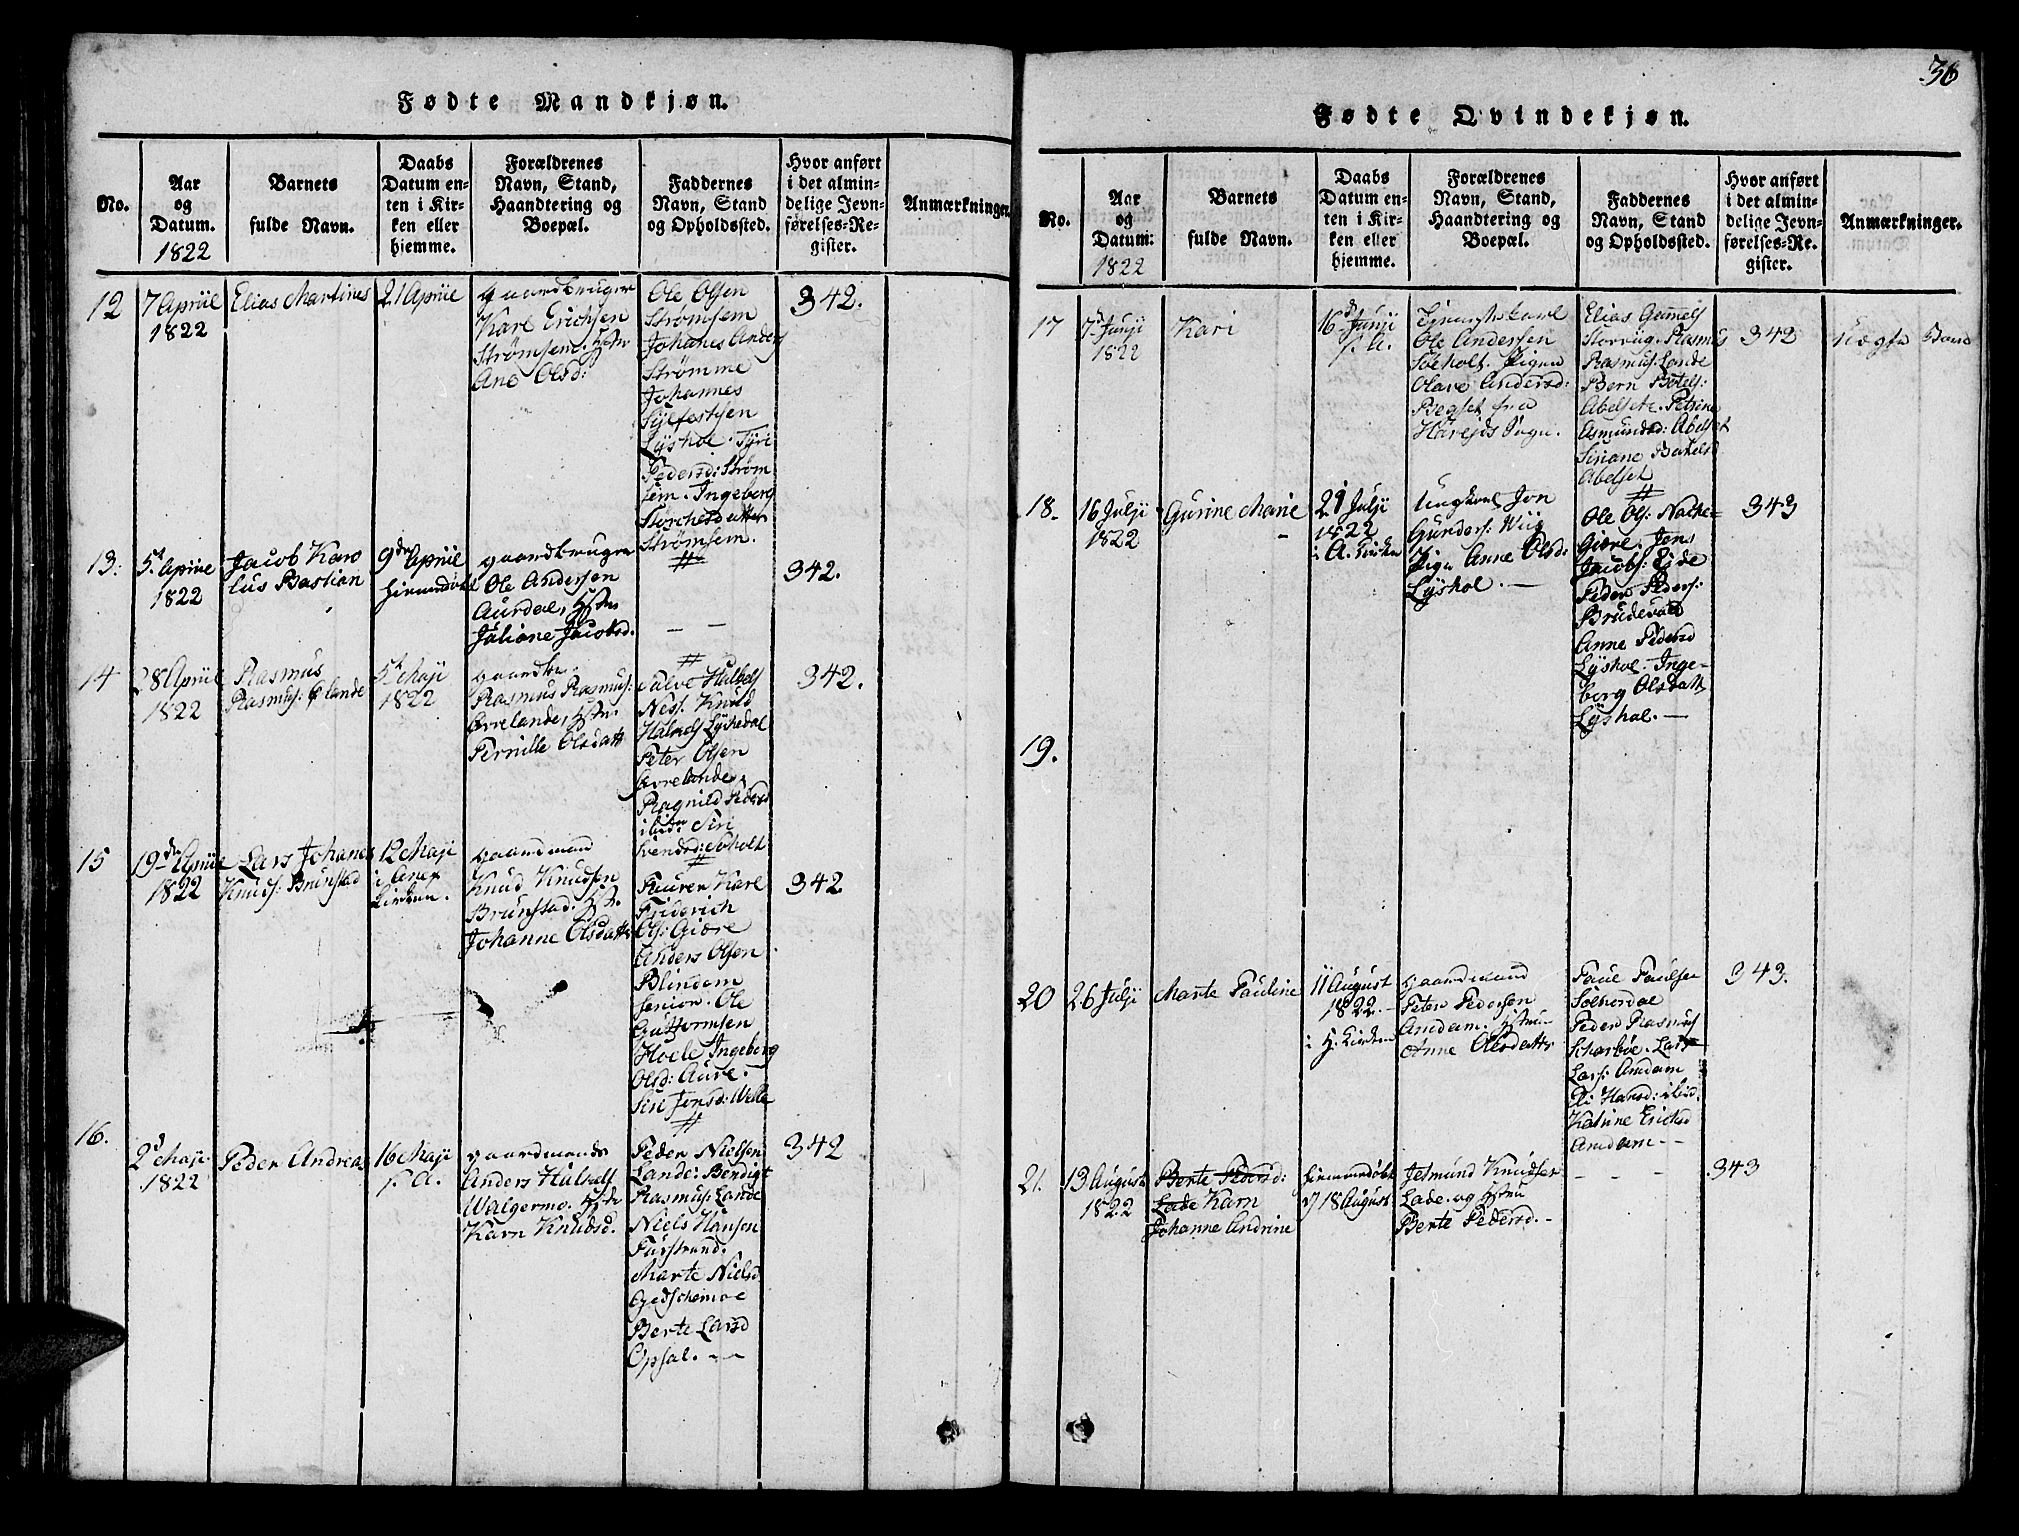 38
Fødte Mandkjøn.
No.
Aar
og
Datum.
1822
Barnets
fulde Navn.
Daabs
Datum en-
ten i Kir-
ken eller
hjemme.
Forældrenes
Navn, Stand,
Haandtering og
Boepæl.
Faddernes
Navn, Stand
og Opholdssted.
Hvor anført
i det almin-
delige Jevn-
førelses-Re-
gister.
Anmærkninger.
12
7 Apriil
1822
Elias Martines
21 Apriil
gaardbruger
Karl Erichsen
Strømsem. Hstr
Ane Olsd:
Ole Olsen
Strømsem
Johanes Anders
Strømme
Johannes
Syfestsen
Lyshol. Tyri
Pedersd: Strøm
sem. Ingeberg
Storchersdatter
Strømsem.
342.
13.
5t Apriil
1822
Jacob Karo
lus Bastian
9de Apriil
hiemmdøbt
gaardbruger
Ole Andersen
Aurdal, Hstr
Juliane Jacobsd.
#
— —
342.
14
28 Apriil
1822
Rasmus
Rasmus: Ø lande
5t Maji
1822
gaardbr.
Rasmus Rasmus:
Ørrelande, Hstr.
Pernille Olsdatt
#
Salve Hulsels
Ness. Knud
Halsels Lyshedal
Peter Olsen
Ørrelande.
Ragnild Pedersd
ibid: Siri
Svendsd: Søholt:
342.
15
19de Apriil
1822
Lars Johanes
Knuds: Brunstad
12 Maji
i Anex
Kirken.
gaardmand
Knud Knudsen
Brunstad. Hst.
Johanne Olsdatt
#
Lauren Karl
Friderich
Ols: Giære
Anders Olsen
Blindem
senior. Ole
Guttormsen
Hoele Ingeberg
Olsd: Aure.
Siri Jonsd: Welle
342
16.
2d Maji
1822
Peder Andreas
16 Maji
p. A.
gaardmands
Anders Hulsels
Walgermo. Hstr
Karn Knudsd.
#
Peder Nielsen
Lande: Bendigt
Rasmus: Lande
Niels Hansen
Furstrand.
Marte Nielsd
Gedschemoe
Berte Larsd
Opsal. —
342
Fødte Qvindekjøn.
No.
Aar
og
Datum:
1822
Barnets
fulde Navn.
Daabs
Datum en-
ten i Kir-
ken eller
hjemme.
Forældrenes
Navn, Stand,
Haandtering og
Boepæl.
Faddernes
Navn, Stand
og Opholdssted.
Hvor anført
i det almin-
delige Jevn-
førelses-Re-
gister.
Anmærkninger.
17
7d Junji
1822
Kari
16d Junji
p. A.
Ole Andersen
Søeholt. Pigen
Olave Andersd:
fra
Sogn.
Elias Gamels
Rasmus
Rasmus: Lande
Bern Botels:
Abelsete. Petrine
Asmundsd: Abelset
Siriane Botelsd
Abelset
342
18.
16 Julji
1822
Gurine Marie
21 Julji
1822
i A. Kirken
Ungkarl Jon
Gunders: Wiig
Pige Anne Olsd:
Lyshol. —
#
Ole Ols: Nakke-
Giære. Jens
Jacobs: Eide
Peder Peders:
Brudevold
Anne Pedersd
Lyshol. Inge-
berg Olsdatt
Lyshol. —
343
19.
20
26 Julji
Marte Pauline
11 August
1822.
i H. Kirken
gaardmand
Peter Pedersen
Amdam. Hstru
Anne Olsdatt
Paul Paulsen
Solnerdal
Peder Rasmus
Scharbøe. Lars
Lars: Amdam
Eli Hansd: ibid.
Katrine Ericksd
Amdam —
343.
21.
13 August
1822
Berte Pedersd:
Lade Karn
Johanne Andrine
hiemmedøbt
d 18 August
Jetmund Knudsen
Lade. og Hstru
Berte Pedersd. —
— — —
343